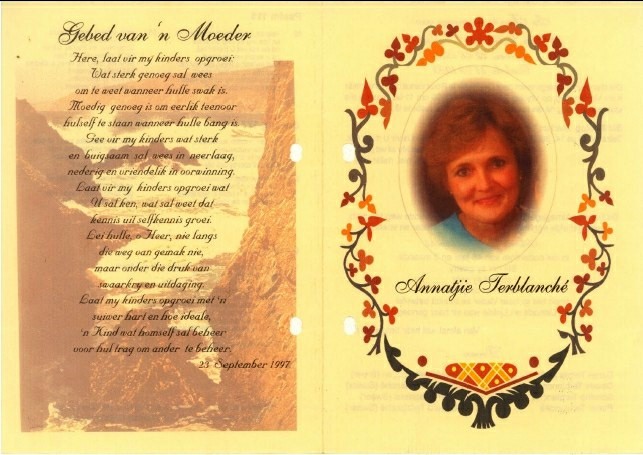 Gebed van 'n Moeder
Here, laat vir my kinders opgroei:
Wat sterk genoeg sal wees
om te weet wanneer hulle swak is.
Moedig genoeg is om eerlik teenoor
hulself te staan wanneer hulle bang is.
Gee vir my kinders wat sterk
en buigsaam sal wees in neerlaag,
nederig en vriendelik in oorwinning.
Laat vir my kinders opgroei wat
U sal ken, wat sal weet dat
kennis uit selfkennis groei.
Lei hulle, o Heer, nie langs
die weg van gemak nie,
maar onder die druk van
swaarkry en uitdaging.
Laat my kinders opgroei met 'n
suiwer hart en hoe ideale,
'n Kind wat homself sal beheer
voor hul trag om ander te beheer.
23 September 1997
Annatjie Terblanché